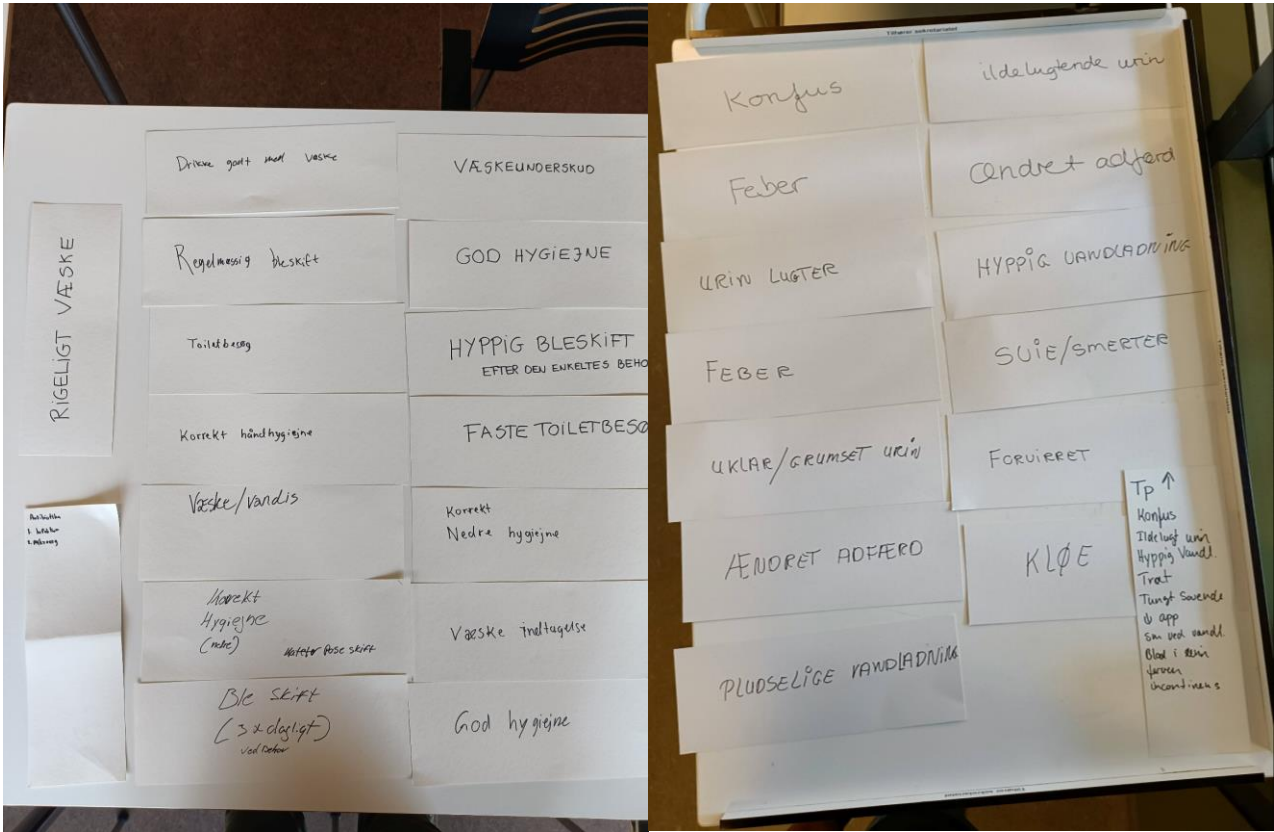 RIGELIGT VÆSKE
Drikke godt med væske
Regelmæssig bleskift
Toiletbesøg
Korrekt håndhygiejne
Væske/vandis
Korrekt
Hygiejne
(nedre)
Kateter Pose skift
Ble skift
(3 x dagligt)
ved behov
VÆSKEUNDERSKUD
GOD HYGIEJNE
HYPPIG BLESKIFT
EFTER DEN ENKELTES BEHO
FASTE TOILETBESØ
Korrekt
Nedre hygiejne
Væske indtagelse
God hygiejne
Tilhører sekretariatet
Konfus
Feber
URIN LUGTER
FEBER
UKLAR/GRUMSET URIN
ÆNDRET ADFÆRD
PLUDSELIGE VANDLADNING
ildelugtende urin
Ændret adfærd
HYPPIG VANDLADNING
SVIE/SMERTER
FORVIRRET
KLØE
Tp ↑
Konfus
Ildelugt urin
Hyppig Vandl.
Træt
Tungt Sovende
↓ app
sm ved vandl.
Blod i urin
farven
incontinens